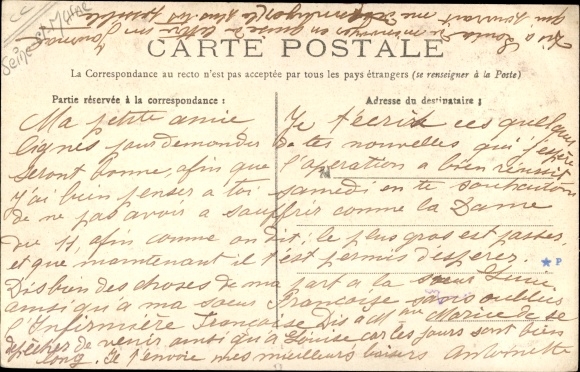 Seine-et-Marne
CARTE POSTALE
La Correspondance au recto n'est pas acceptée par tous les pays étrangers (se renseigner à la Poste)
Partie réservée à la correspondance :
Adresse du destinataire :
Ma petite amie Je t'écris ces quelques
lignes pour demander de tes nouvelles qui j'espère
seront bonne, afin que l'opération a bien réussit
j'ai bien penser a toi samedi en te souhaitant
de ne pas avoir a souffrir comme la Dame
du 11, afin comme on dit : le plus gros est passer
et que maintenant il t'est permis d'espérer.
Dis bien des choses de ma part a la sœur
ainsi qu'a ma sœur Françoise sans oublier
l'Infirmière Françoise Dis a Mme Marice de se
depêcher de venir ainsi qu'a Louise car les jours sont bien
long. Je t'envoie mes meilleurs baisers Antoinette
Dis a Louise de
qui pourrait me